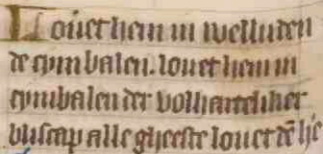 Louet hem in welluden
de cymbalen. louet hem in
cymbalen der volhartelиker
bliscap alle gheeste louet dē hē